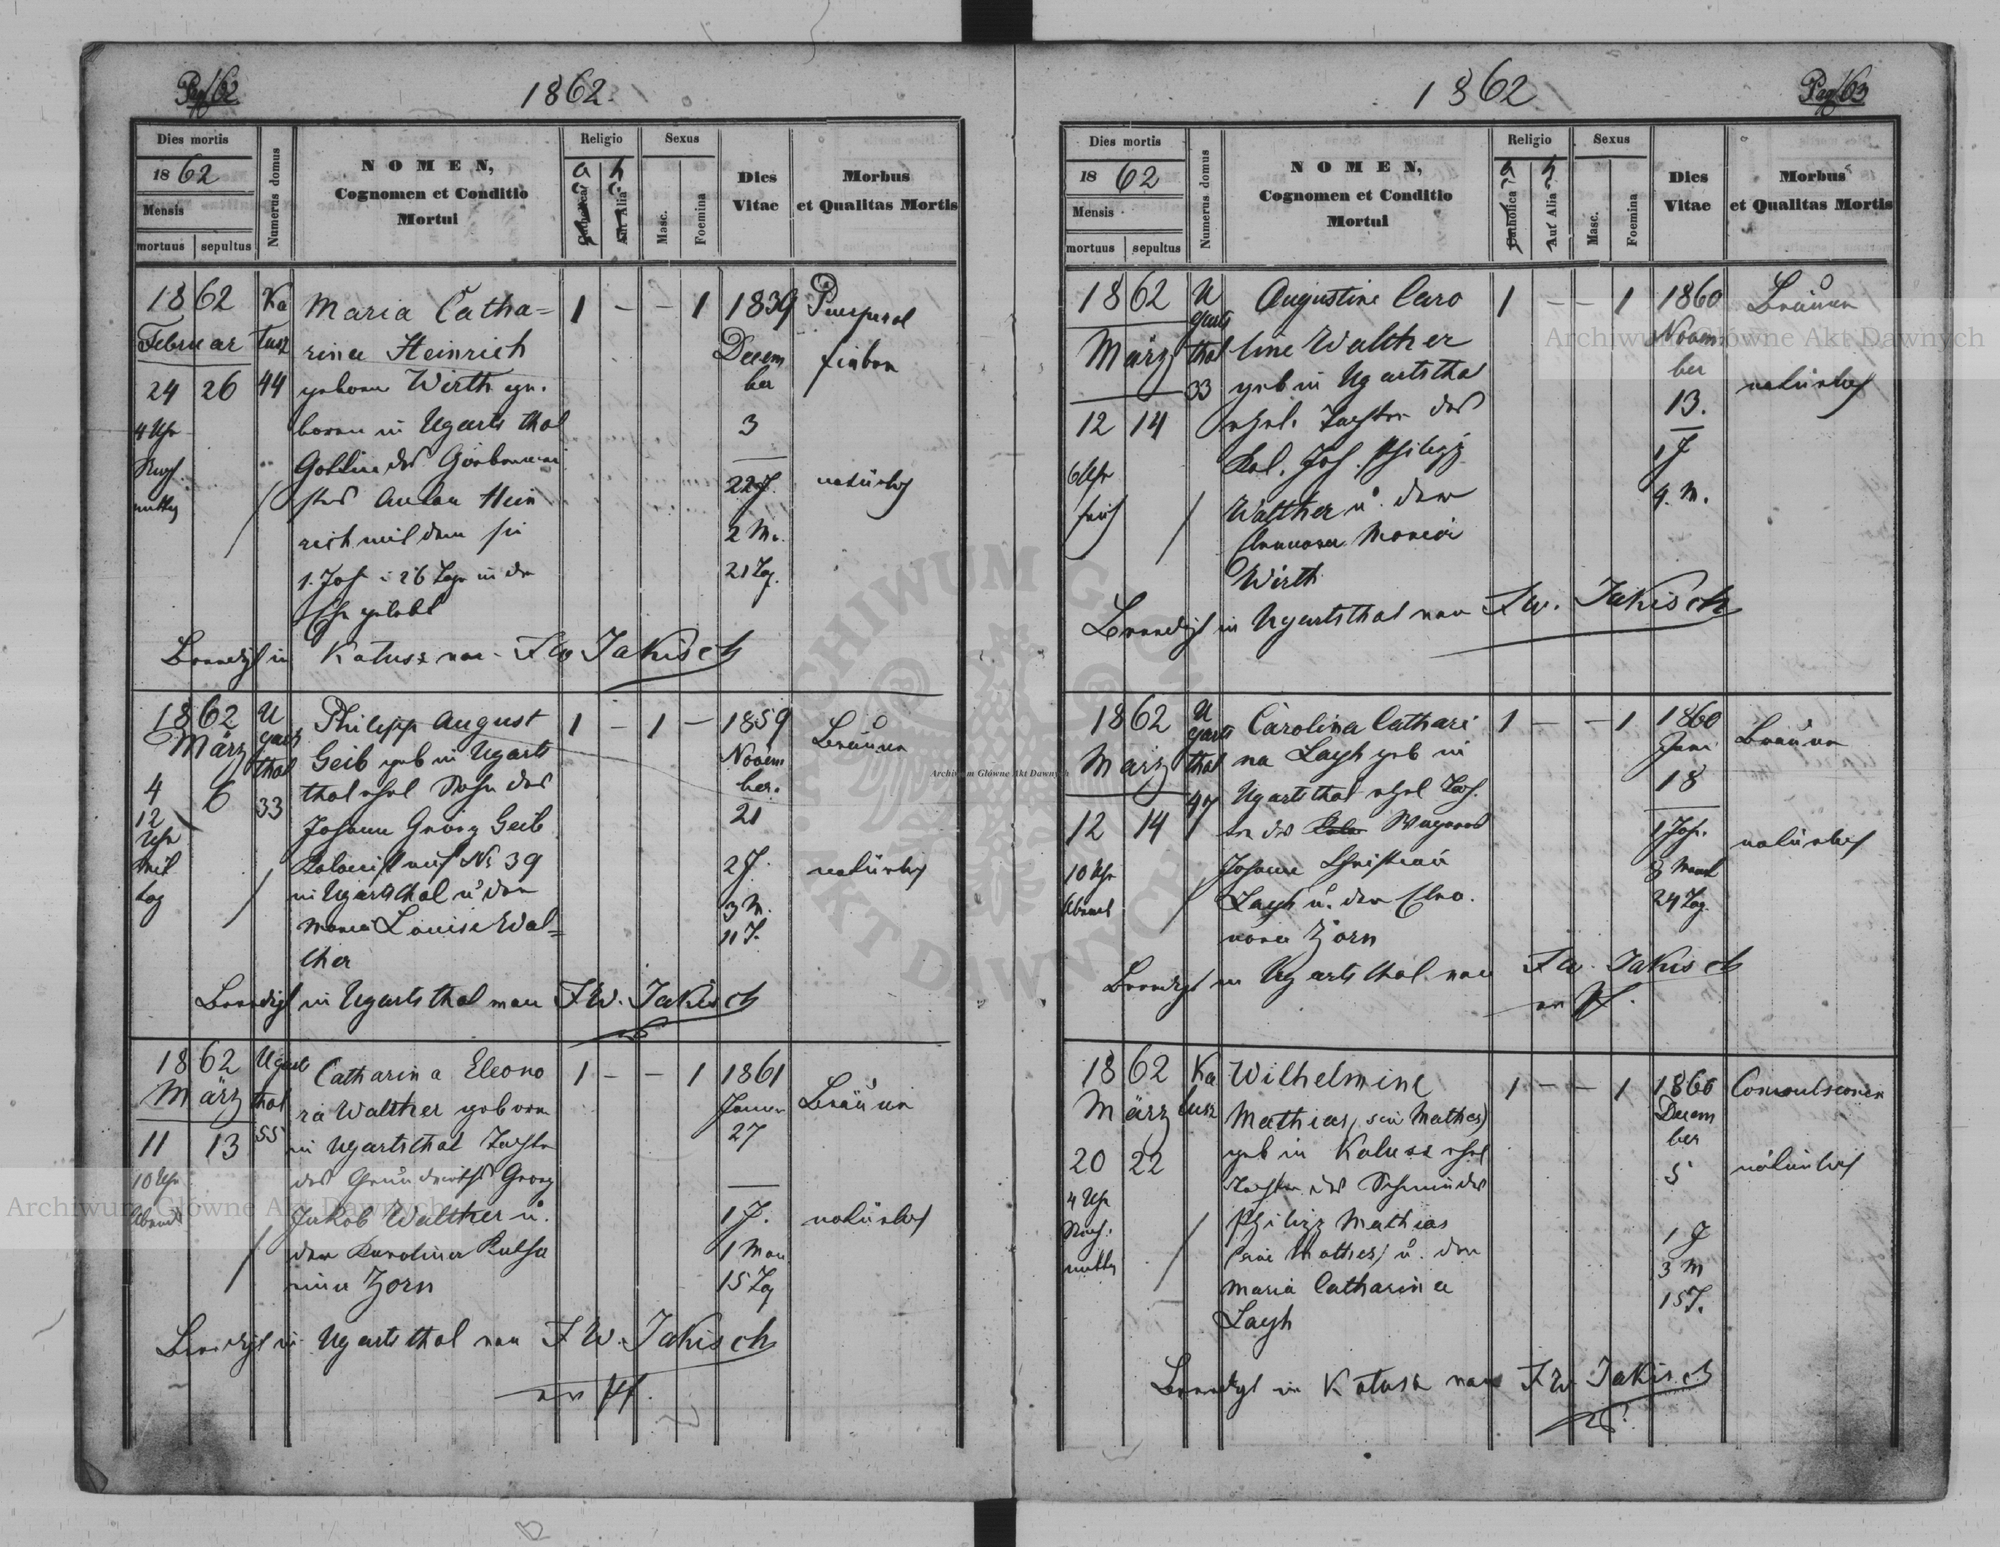 Pag 62
1862.
Dies mortis
1862
Mensis
mortuus
sepultus
Numerus domus
NOMEN,
Cognomen et Conditio
Mortui
Religio
a
h
c
c
Catholica
Aut Alia
Sexus
Masc.
Foemina
Dies
Vitae
Morbus
et Qualitas Mortis
1862
Februar
24 26
4 Uhr
Nach
mittg
Ka
lusz
44
Maria Catha=
rina Heinrich
geborne Wirth ge.
boren in Ugartsthal
Gattin des
Anton Hein
rich mit dem sie
1. Jahr u 26 Tage in der
Ehe gelebt
1 – – 1
1839
Decem
ber
3
22 J.
2 M.
21 Tag.
Puerperal
fieber
natürlich
Beerdigt in Kalusz von F W Jakisch
1862
März
4 6
12
Uhr
Mit
tag
U
garts
thal
33
Philipp August
Geib geb in Ugarts
thal ehel Sohn des
Johann Georg Geib
Kolonist auf Nr 39
in Ugartsthal u der
Maria Louise Wal=
ther
1 – 1 –
1859
Novem
ber.
21
2 J.
3 M.
11 T.
Bräune
natürlich
Beerdigt in Ugartsthal von F W. Jakisch
1862
März
11 13
10 Uhr
Abends
Ugarts
thal
55
Catharina Eleono
ra Walther geboren
in Ugartsthal Tochter
des Grundwirths Georg
Jakob Walther u.
der Karolina Katha
rina Zorn
1 – – 1
1861
Januar
27
1 J.
1 Mon
15 Tag
Bräune
natürlich
Beerdigt in Ugartsthal von F W. Jakisch
ev Pf.
1862
Pag 63
Dies mortis
1862
Mensis
mortuus
sepultus
Numerus domus
NOMEN,
Cognomen et Conditio
Mortui
Religio
a
h
c
c
Catholica
Aut Alia
Sexus
Masc.
Foemina
Dies
Vitae
Morbus
et Qualitas Mortis
1862
März
12 14
6 Uhr
früh
U
garts
thal
33
Augustine Caro
line Walther
geb in Ugartstha
ehel. Tochter des
Kol. Joh. Philipp
Walther u. der
Eleonora Maria
Wirth
1 – – 1
1860
Novem
ber
13.
1 J
4. M.
Bräune
natürlich
Beerdigt in Ugartsthal von F W. Jakisch
1862
März
12 14
10 Uhr
Abends
U
garts
thal
47
Carolina Cathari
na Layh geb in
Ugartsthal ehel Toch.
ter des Wagners
Johann Christian
Layh u. der Eleo.
nora Zorn
1 – – 1
1860
Juni
18
1 Jahr.
8 Monat
24 Tag.
Bräune
natürlich
Beerdigt in Ugartsthal von F W. Jakisch
ev Pf.
1862
März
20 22
4 Uhr
Nach.
mittg
Ka
lusz
Wilhelmine
Mathias, (sive Mathes)
geb in Kalusz ehel
Tochter des Schmindes
Philipp Mathias
(sive Mathes) u. der
Maria Catharina
Layh
1 – – 1
1860
Decem
ber
5
1 J
3 M
15 T.
Convulsionen
natürlich
Beerdigt in Kalusz von F W Jakisch
Archiwum Główne Akt Dawnych
Archiwum Główne Akt Dawnych
Archiwum Główne Akt Dawnych
ARCHIWUM GŁÓWNE AKT DAWNYCH